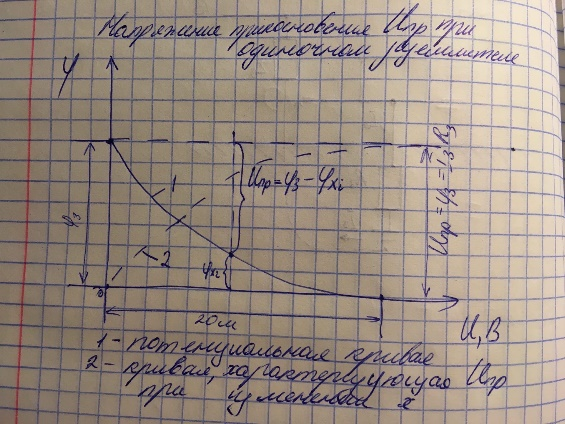 Напряжение прикосновения Uпр при
одиночном заземлителе
φ
1
Uпр=φз-φx₂
Uпр=φз=IзRз
φз
2
φx₂
1
0
20м
U,В
1-потенциальная кривая
2-кривая, характеризующая Uпр
при изменении x